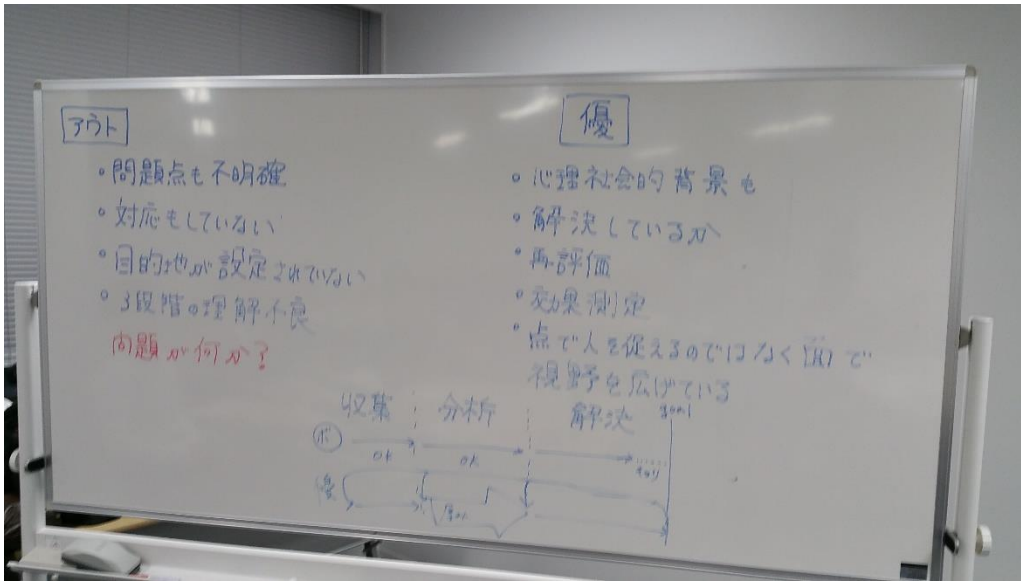 アウト
・問題点も不明確
・対応もしていない
・目的地が設定されていない
・3段階の理解不良
問題が何か?
優
・心理社会的背景も
・解決しているか
・再評価
・効果測定
・点で人を促えるのではなく面で
視野を広げている
収集 分析 解決 goal
ボ OK OK
優